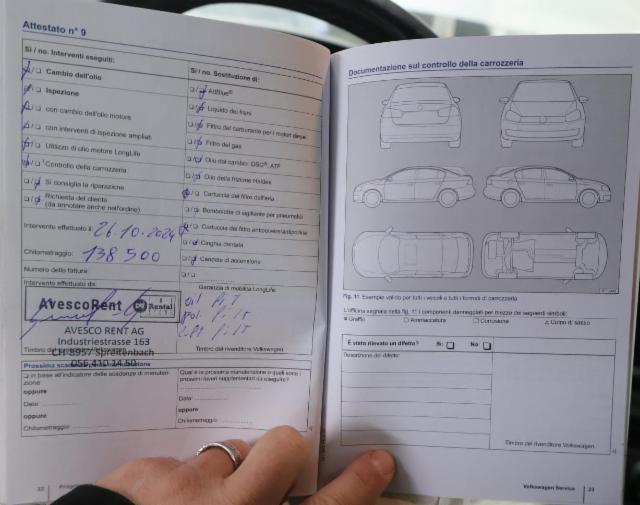 Attestato n° 9
Sì / no. Interventi eseguiti:
Cambio dell'olio
Ispezione
con cambio dell'olio motore
con interventi di ispezione ampliati
Utilizzo di olio motore LongLife
Controllo della carrozzeria
Si consiglia la riparazione
Richiesta del cliente
(da annotare anche nell'ordine)
Intervento effettuato il 26.10.2024
Chilometraggio: 138 500
Numero della fattura:
Intervento effettuato da:
AvescoRent Rental
AVESCO RENT AG
Industriestrasse 163
CH-8957 Spreitenbach
056 410 14 50
Timbro del
Sì / no. Sostituzione di:
AdBlue®
Liquido dei freni
Filtro del carburante per i motori diesel
Filtro del gas
Olio del cambio: DSG®, ATF
Olio della frizione Haldex
Cartuccia del filtro dell'aria
Bomboletta di sigillante per pneumatici
Cartuccia del filtro antipolvere/antipolline
Cinghia dentata
Candele di accensione
Garanzia di mobilità LongLife:
Timbro del rivenditore Volkswagen
Prossima scadenza per la manutenzione
in base all'indicatore delle scadenze di manuten-
zione
oppure
Data:
oppure
Chilometraggio
Qual è la prossima manutenzione e quali sono i
prossimi lavori supplementari da eseguire?
Data:
oppure
Chilometraggio
22
Documentazione sul controllo della carrozzeria
Fig. 11 Esempio valido per tutti i veicoli e tutti i formati di carrozzeria
L'officina segnala nella fig. 11 i componenti danneggiati per mezzo dei seguenti simboli:
Graffio Ammaccatura Corrosione Colpo di sasso
È stato rilevato un difetto? Sì: No:
Descrizione del difetto:
Timbro del rivenditore Volkswagen
Volkswagen Service 23